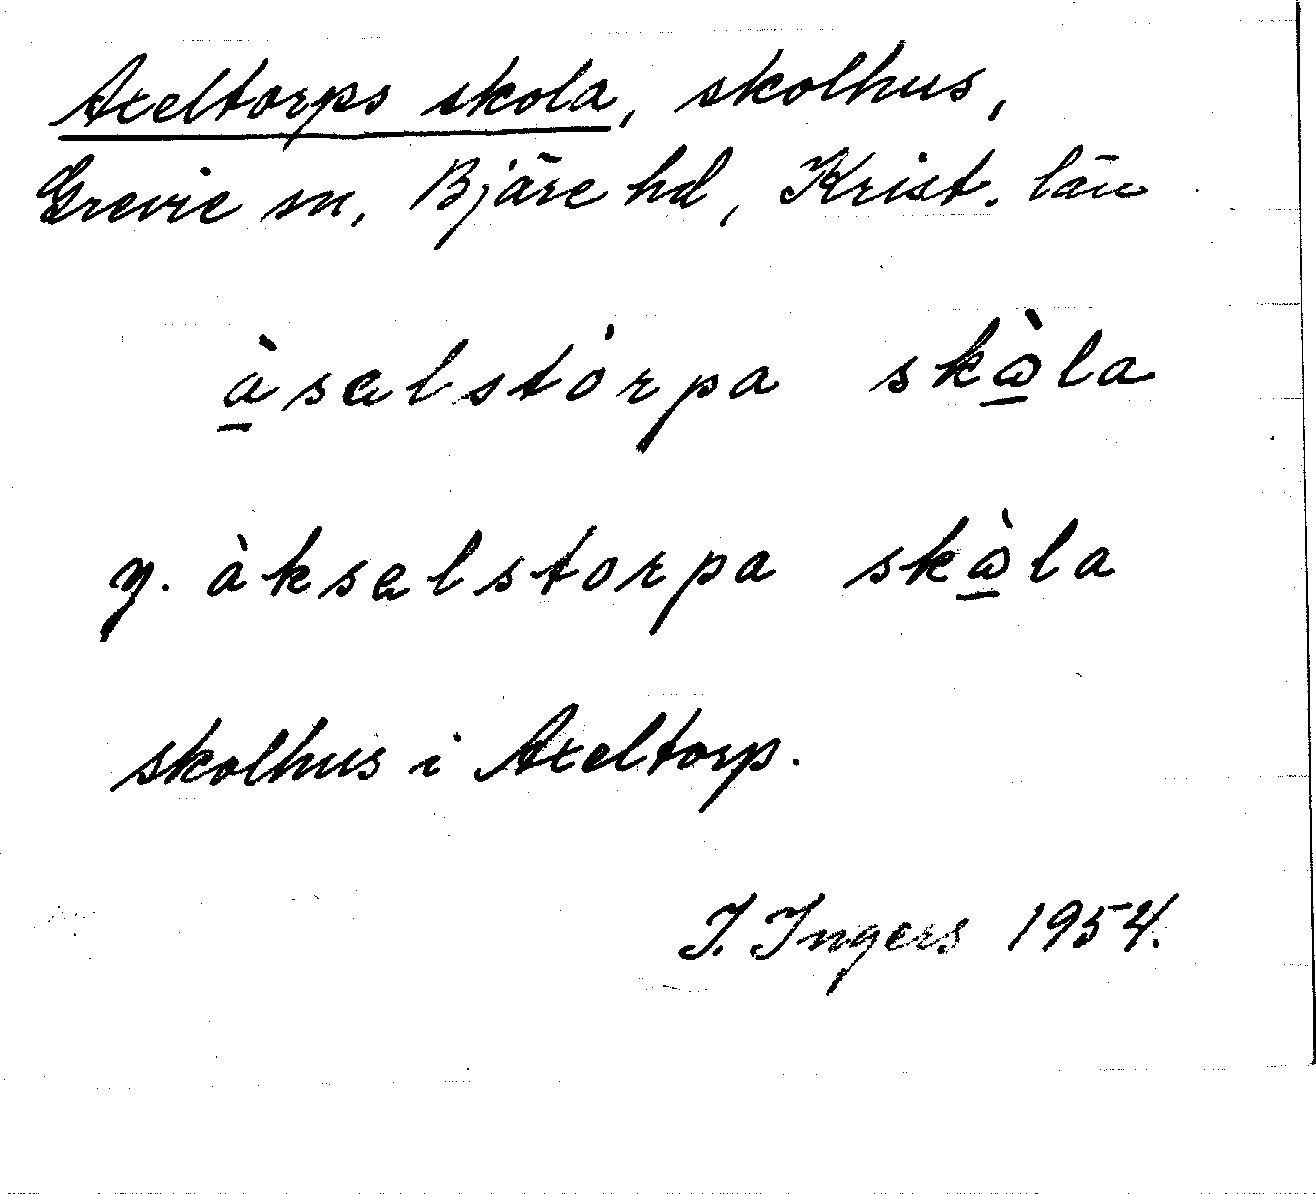 Axeltorps skola, skolhus,
Grevie sn, Bjäre hd, Krist. län
à̱səlstórpa skɷ̱̀la
y. àksəlstorpa skɷ̱̀la
skolhus i Axeltorp.
I. Ingers 1954.